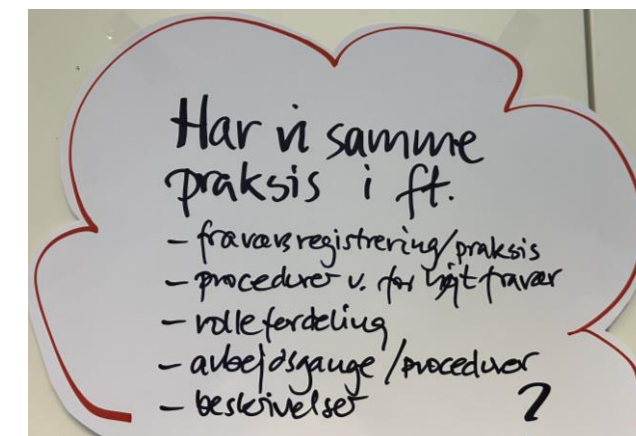 Har vi samme
praksis i ft.
- fraværsregistrering/praksis
- procedurer v. for højt fravær
- rollefordeling
- arbejdsgange/procedurer
- beskrivelser ?